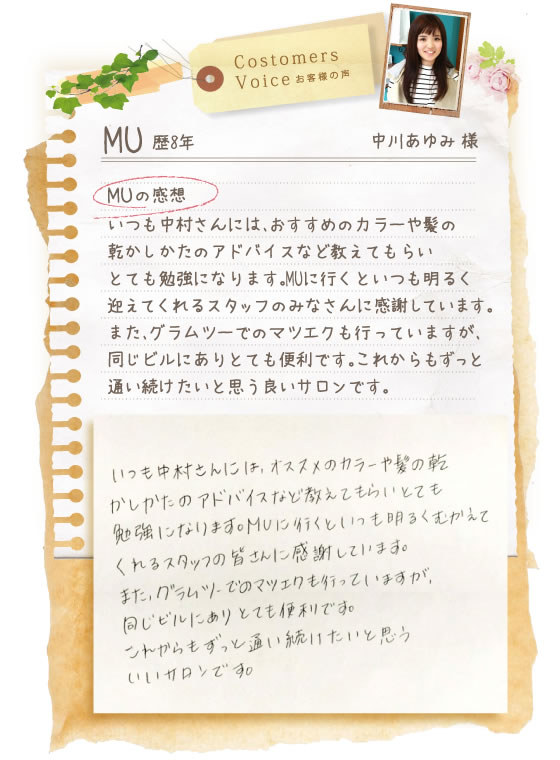 Costomers
Voice お客様の声
MU 歴8年
中川あゆみ 様
MUの感想
いつも中村さんには、おすすめのカラーや髪の
乾かしかたのアドバイスなど教えてもらい
とても勉強になります。MUに行くといつも明るく
迎えてくれるスタッフのみなさんに感謝しています。
また、グラムツーでのマツエクも行っていますが、
同じビルにありとても便利です。これからもずっと
通い続けたいと思う良いサロンです。
いつも中村さんには、オススメのカラーや髪の乾
かしかたのアドバイスなど教えてもらいとても
勉強になります。MUに行くといつも明るくむかえて
くれるスタッフの皆さんに感謝しています。
また、グラムツーでのマツエクも行っていますが、
同じビルにありとても便利です。
これからもずっと通い続けたいと思う
いいサロンです。